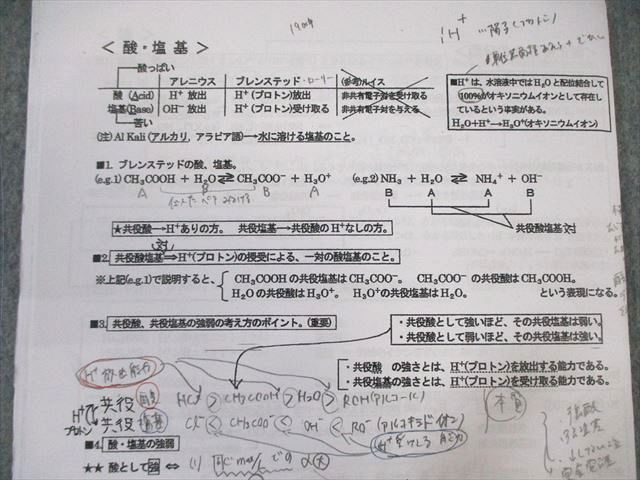 1904
H⁺
＜ 酸・塩基 ＞
酸っぱい
アレニウス ブレンステッド・ローリー (参考)ルイス
酸 (Acid) H⁺ 放出 H⁺(プロトン)放出 非共有電子対を受け取る
塩基(Base) OH⁻ 放出 H⁺(プロトン)受け取る 非共有電子対を与える
苦い
(注) Al Kali (アルカリ, アラビア語)→水に溶ける塩基のこと。
■H⁺ は、水溶液中では H₂O と配位結合して
100%がオキソニウムイオンとして存在し
ているという事実がある。
H₂O＋H⁺→H₃O⁺(オキソニウムイオン)
■1. ブレンステッドの酸、塩基。
(e.g.1) CH₃COOH ＋ H₂O ⇄ CH₃COO⁻ ＋ H₃O⁺
A B B A
(e.g.2) NH₃ ＋ H₂O ⇄ NH₄⁺ ＋ OH⁻
B A A B
共役酸塩基対
★共役酸→H⁺ありの方。 共役塩基→共役酸の H⁺なしの方。
対
■2. 共役酸塩基⇒H⁺(プロトン)の授受による、一対の酸塩基のこと。
※上記(e.g.1)で説明すると、
CH₃COOH の共役塩基は CH₃COO⁻。 CH₃COO⁻ の共役酸は CH₃COOH。
H₂O の共役酸は H₃O⁺。 H₃O⁺の共役塩基は H₂O。 という表現になる。
■3. 共役酸、共役塩基の強弱の考え方のポイント。(重要)
・共役酸として強いほど、その共役塩基は弱い。
・共役酸として弱いほど、その共役塩基は強い。
・共役酸 の強さとは、H⁺(プロトン)を放出する能力である。
・共役塩基の強さとは、H⁺(プロトン)を受け取る能力である。
H⁺放出能力
共役 酸 HCl > CH₃COOH > H₂O > ROH (アルコール)
H⁺
プロトン
共役 塩基 Cl⁻ < CH₃COO⁻ < OH⁻ < RO⁻ (アルコキシドイオン)
本質
■4. 酸・塩基の強弱
★★ 酸として強 ⇔ (1) 同じmol/Lでの α大